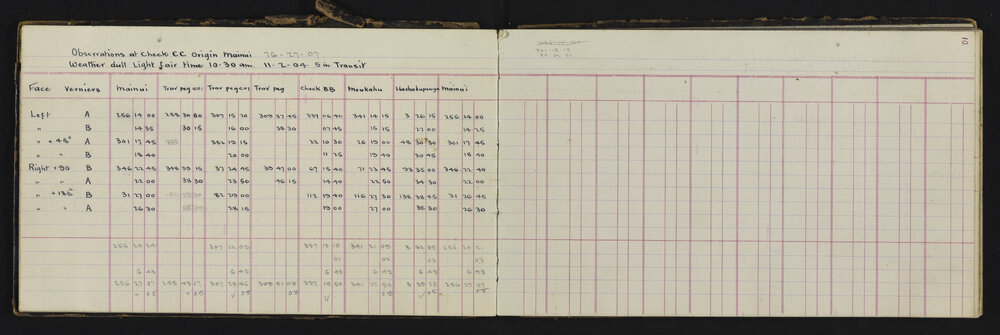 Observations at Check CC Origin Mainui 76-27-07
Weather dull Light fair Time 10.30 am. 11.2.04 5 in Transit
10
Face Verniers Mainui Trav peg Trav peg Trav peg Check BB Moukahu Mainui
Left A 256 14 00 255 30 00 307 15 20 309 37 45 337 06 40 341 14 15 3 26 15 256 14 00
" B 14 35 30 15 16 00 38 30 07 45 15 15 27 00 14 25
" +45° A 301 17 45 352 19 15 22 10 30 26 19 00 48 30 30 301 17 45
" " B 18 40 20 00 11 25 19 40 30 45 18 40
Right +90 B 346 22 45 37 24 45 39 47 00 67 15 40 71 23 45 93 35 00 346 22 40
" " A 22 00 38 30 23 50 46 15 14 40 22 50 34 30 22 00
" +135° B 31 27 00 82 29 00 112 19 40 116 27 30 138 38 45 31 26 45
" " A 26 30 28 15 19 00 27 00 38 30 26 30
256 20 24 307 22 03 337 13 10 341 21 05 3 32 35 256 20 21
01 02 03 03
6 43 6 43 6 43 6 43 6 43 6 43
256 27 07 307 28 46 309 41 00 256 27 07